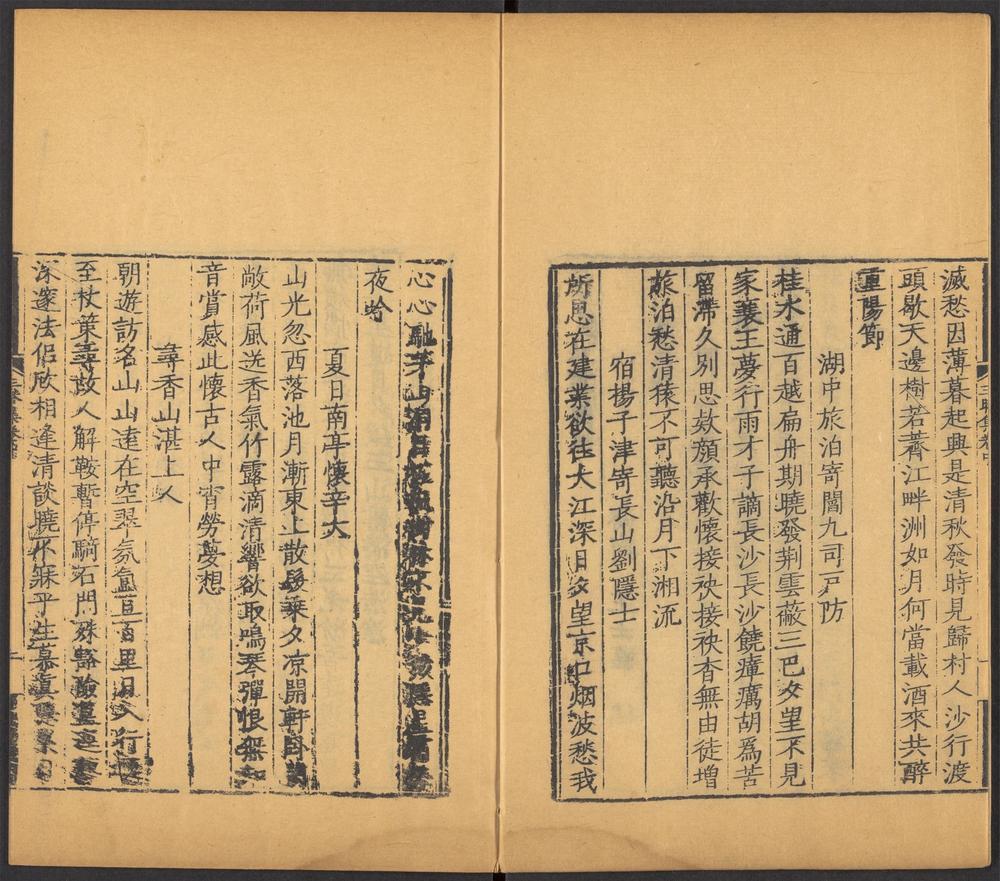 滅愁因薄暮起興是清秋發時見歸村人沙行渡
頭歇天邊樹若薺江畔洲如月何當載酒來共醉
重陽節
湖中旅泊寄閻九司戸防
桂水通百越扁舟期曉發荆雲蔽三巴夕望不見
家襄王夢行雨才子謫長沙長沙饒瘴癘胡爲苦
留滯久别思欵顔承歡懷接袂接袂杳無由徒増
旅泊愁清猿不可聽沿月下湘流
宿揚子津寄長山劉隱士
所思在建業欲往大江深日夕望京口烟波愁我
心心馳茅山洞目
夜吟
夏日南亭懷辛大
山光忽西落池月漸東上散髮乗夕凉開軒卧
敞荷風送香氣竹露滴清響欲取鳴琴彈恨無知
音賞感此懷古人中宵勞夢想
尋香山湛上人
朝遊訪名山山遠在空翠氛氲亘百里日入行
至杖策尋故人解鞍暫停騎石門殊豁險
深邃法侣欣相逢清談曉不寐平生慕眞